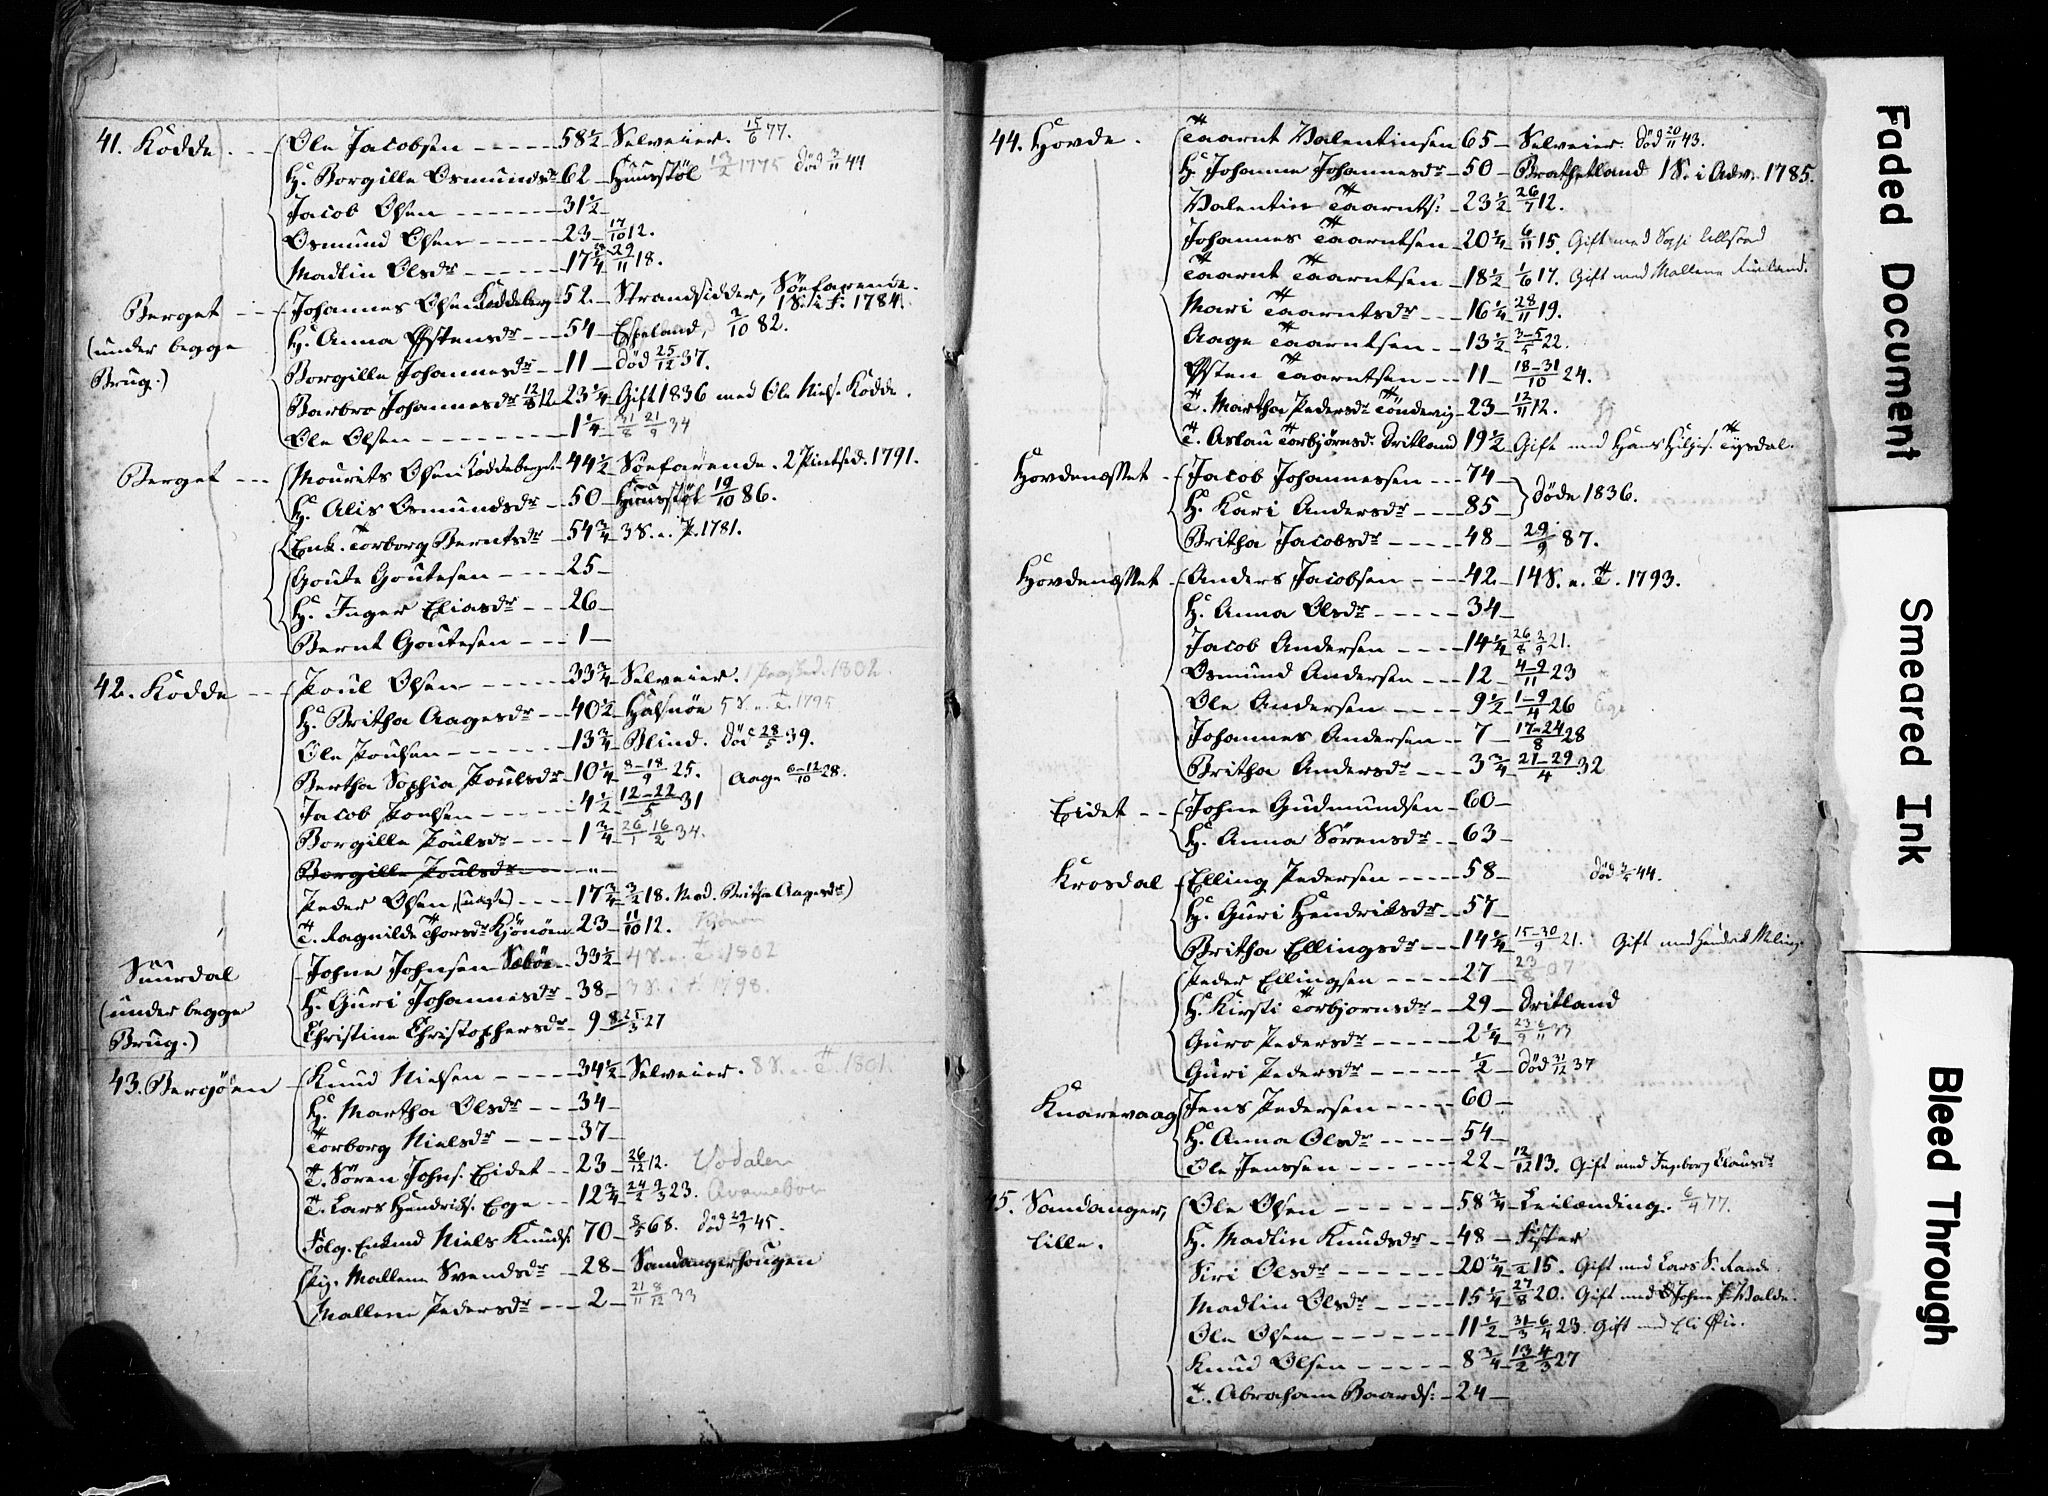 41. Kodde. - - Ole Jacobsen - - - - - 58½ Selveier. 15/6 77.
H. Borgille Osmundsdr 62 Huusstöl 12/2 1775 död 3/11 44
Jacob Olsen - - - - - - 31½
Osmund Olsen - - - - - 23 - 17/10 12.
Madlin Olsdr - - - - - - 17¾ 29/11 18.
Berget - - Johannes Olsen Koddeberg 52 - Strandsidder, Söefarende. 1 S. i F. 1784.
(under begge Brug.)
H. Anna Östensdr - - 54 - Espeland, 2/10 82.
Borgille Johannesdr 11 - död 25/12 37.
Barbro Johannesdr 12/8 12 - 23¼ Gift 1836 med Ole Niels. Kodde.
Ole Olsen - - - - - - - - 1¼ 31/8 21/9 34
Berget - - - Mourits Olsen Koddeberget 44½ Söefarende. 2 Pintsed. 1791.
H. Alis Osmundsdr - 50 - Huusstöl 19/10 86.
Enk. Torborg Berntsdr - 54¾ 3 S. e. P. 1781.
Goute Goutesen - - - - 25 -
H. Inger Eliasdr - - - 26 -
Bernt Goutesen - - - - 1 -
42. Kodde - - Poul Olsen - - - - - 33¾ Selveier. 1802.
H. Britha Aagesdr - - 40½ Halsnöe 5 S. e. T. 1795
Ole Poulsen - - - - - - 13¾ Blind. död 28/5 39.
Bertha Sophia Poulsdr 10¼ 8-18/9 25. Aage 6-12/10 28.
Jacob Poulsen - - - - - 4½ 12-22/5 31
Borgille Poulsdr - - - - 1¾ 26/1 16/2 34.
Borgille Poulsdr - - - "
Peder Olsen, (uægte) - - - - 17¾ 3/2 18. Mod. Britha Aagesdr)
T. Ragnilde Thorsdr Kjönöen 23 - 11/10 12.
Suurdal - Johne Johnsen Sæböe - 33½ 4 S. e. T. 1802
(under begge Brug.)
H. Guri Johannesdr - 38 - 3 S. i F. 1798.
Christine Christophersdr - 9 8/25/3 27
43. Bergöen - Knud Nielsen - - - - - 34½ Selveier. 8 S. e. T. 1801.
H. Martha Olsdr - - - 34 -
Torborg Nielsdr - - - - 37 -
T. Sören Johns. Eidet - - 23 - 26/12 12. Vodalen
T. Lars Hendriks. Ege - - 12¾ 24/2 9/3 23.
Folg. Enkmd Niels Knuds. 70 - 8/5 68. död 29/4 45.
Pig. Mallene Svendsdr - 28 - Sandangerhougen
Mallene Pedersdr - - - 2 - 21/11 8/12 33
44. Hovde. Taarnt Valentinsen 65 - Selveier. död 20/11 43.
H. Johanne Johannesdr - 50 - Brathetland 1 S. i Adv. 1785.
Valentin Taarnts: 23½ 26/7 12.
Johannes Taarntsen 20¼ 6/11 15. Gift med
Taarnt Taarntsen 18½ 1/6 17. Gift med Mallene
Mari Taarntsdr - - - 16¼ 28/11 19.
Aage Taarntsen - - 13½ 3-5/5 22.
Østen Taarntsen - - - 11 - 18-31/10 24.
T. Martha Pedersdr Töndevig - 23 - 12/11 12.
T. Aslau Torbjörnsdr. Dritland 19½ Gift med Hans Tysdal.
Hovdenæsset - Jacob Johannessen - - 74 - } döde 1836.
H. Kari Andersdr - - - 85 -
Britha Jacobsdr - - - - 48 - 29/9 87.
Hovdenæsset - Anders Jacobsen - - - 42. - 14 S. e. T. 1793.
H. Anna Olsdr - - - - - 34 -
Jacob Andersen - - - - 14¼ 26/8 2/9 21.
Osmund Andersen - - 12 - 4-9/11 23
Ole Andersen - - - - - 9½ 1-9/4 26
Johannes Andersen - - 7 - 17-24/8 28
Britha Andersdr - - - 3¾ 21-29/4 32
Eidet - - Johne Gudmundsen - 60 -
H. Anna Sörensdr - - 63 -
Krosdal - Elling Pedersen - - - - - 58 - död 44.
H. Guri Hendriksdr - 57 -
Britha Ellingsdr - - 14¼ 15-30/9 21. Gift med Hendrik
Peder Ellingsen - - - - 27 - 23/8 07
H. Kirsti Torbjornsdr - 29 - Dritland
Guro Pedersdr - - - - - 2¼ 23/9 6/11 33
Guri Pedersdr - - - - - - ½ - död 31/12 37
Knarevaag Jens Pedersen - - - - - 60 -
H. Anna Olsdr - - - - - 54 -
Ole Jenssen - - - - - - 22 - 12/12 13. Gift med Ingeborg Klausdr
45. Sandanger, lille. Ole Olsen - - - - - - 58¾ Leilænding. 6/4 77.
H. Madlin Knudsdr - - 48 - Fister
Siri Olsdr - - - - - - - 20¾ 15. Gift med Lars S. Rande.
Madlin Olsdr - - - - - 15¼ 27/8 20. Gift med Johne Valde.
Ole Olsen - - - - - - - 11½ 31/3 6/4 23. Gift med Eli
Knud Olsen - - - - - - 8¾ 13/2 4/3 27
T. Abraham Baards: - 24 -
Faded Document
Smeared Ink
Bleed Through